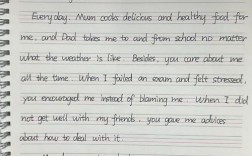 Everyday. Mum cooks delicious and healthy food for
me, and Dad takes me to and from school no matter
what the weather is like. Besides, you care about me
all the time. When I failed an exam and felt stressed,
you encouraged me instead of blaming me. When I did
not get well with my friends, you gave me advices
about how to deal with it.